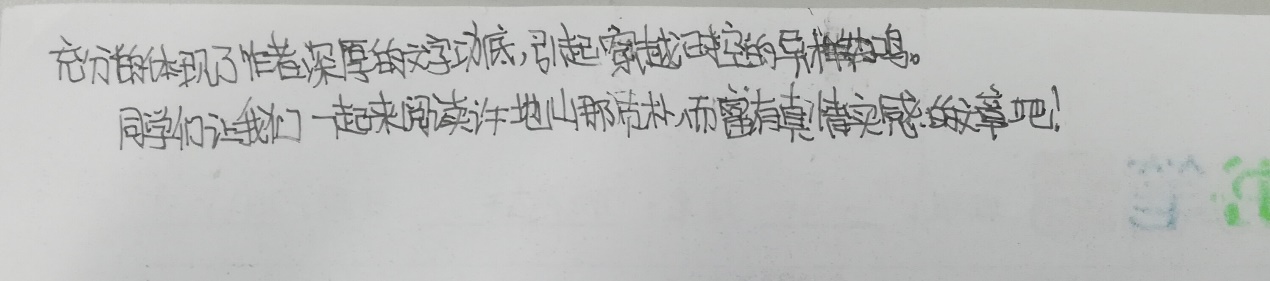 充分的体现了作者深厚的文字功底,引起穿越时空的异样鸣。
同学们让我们一起来阅读许地山那质朴而富有真情实感的文章吧!
笔